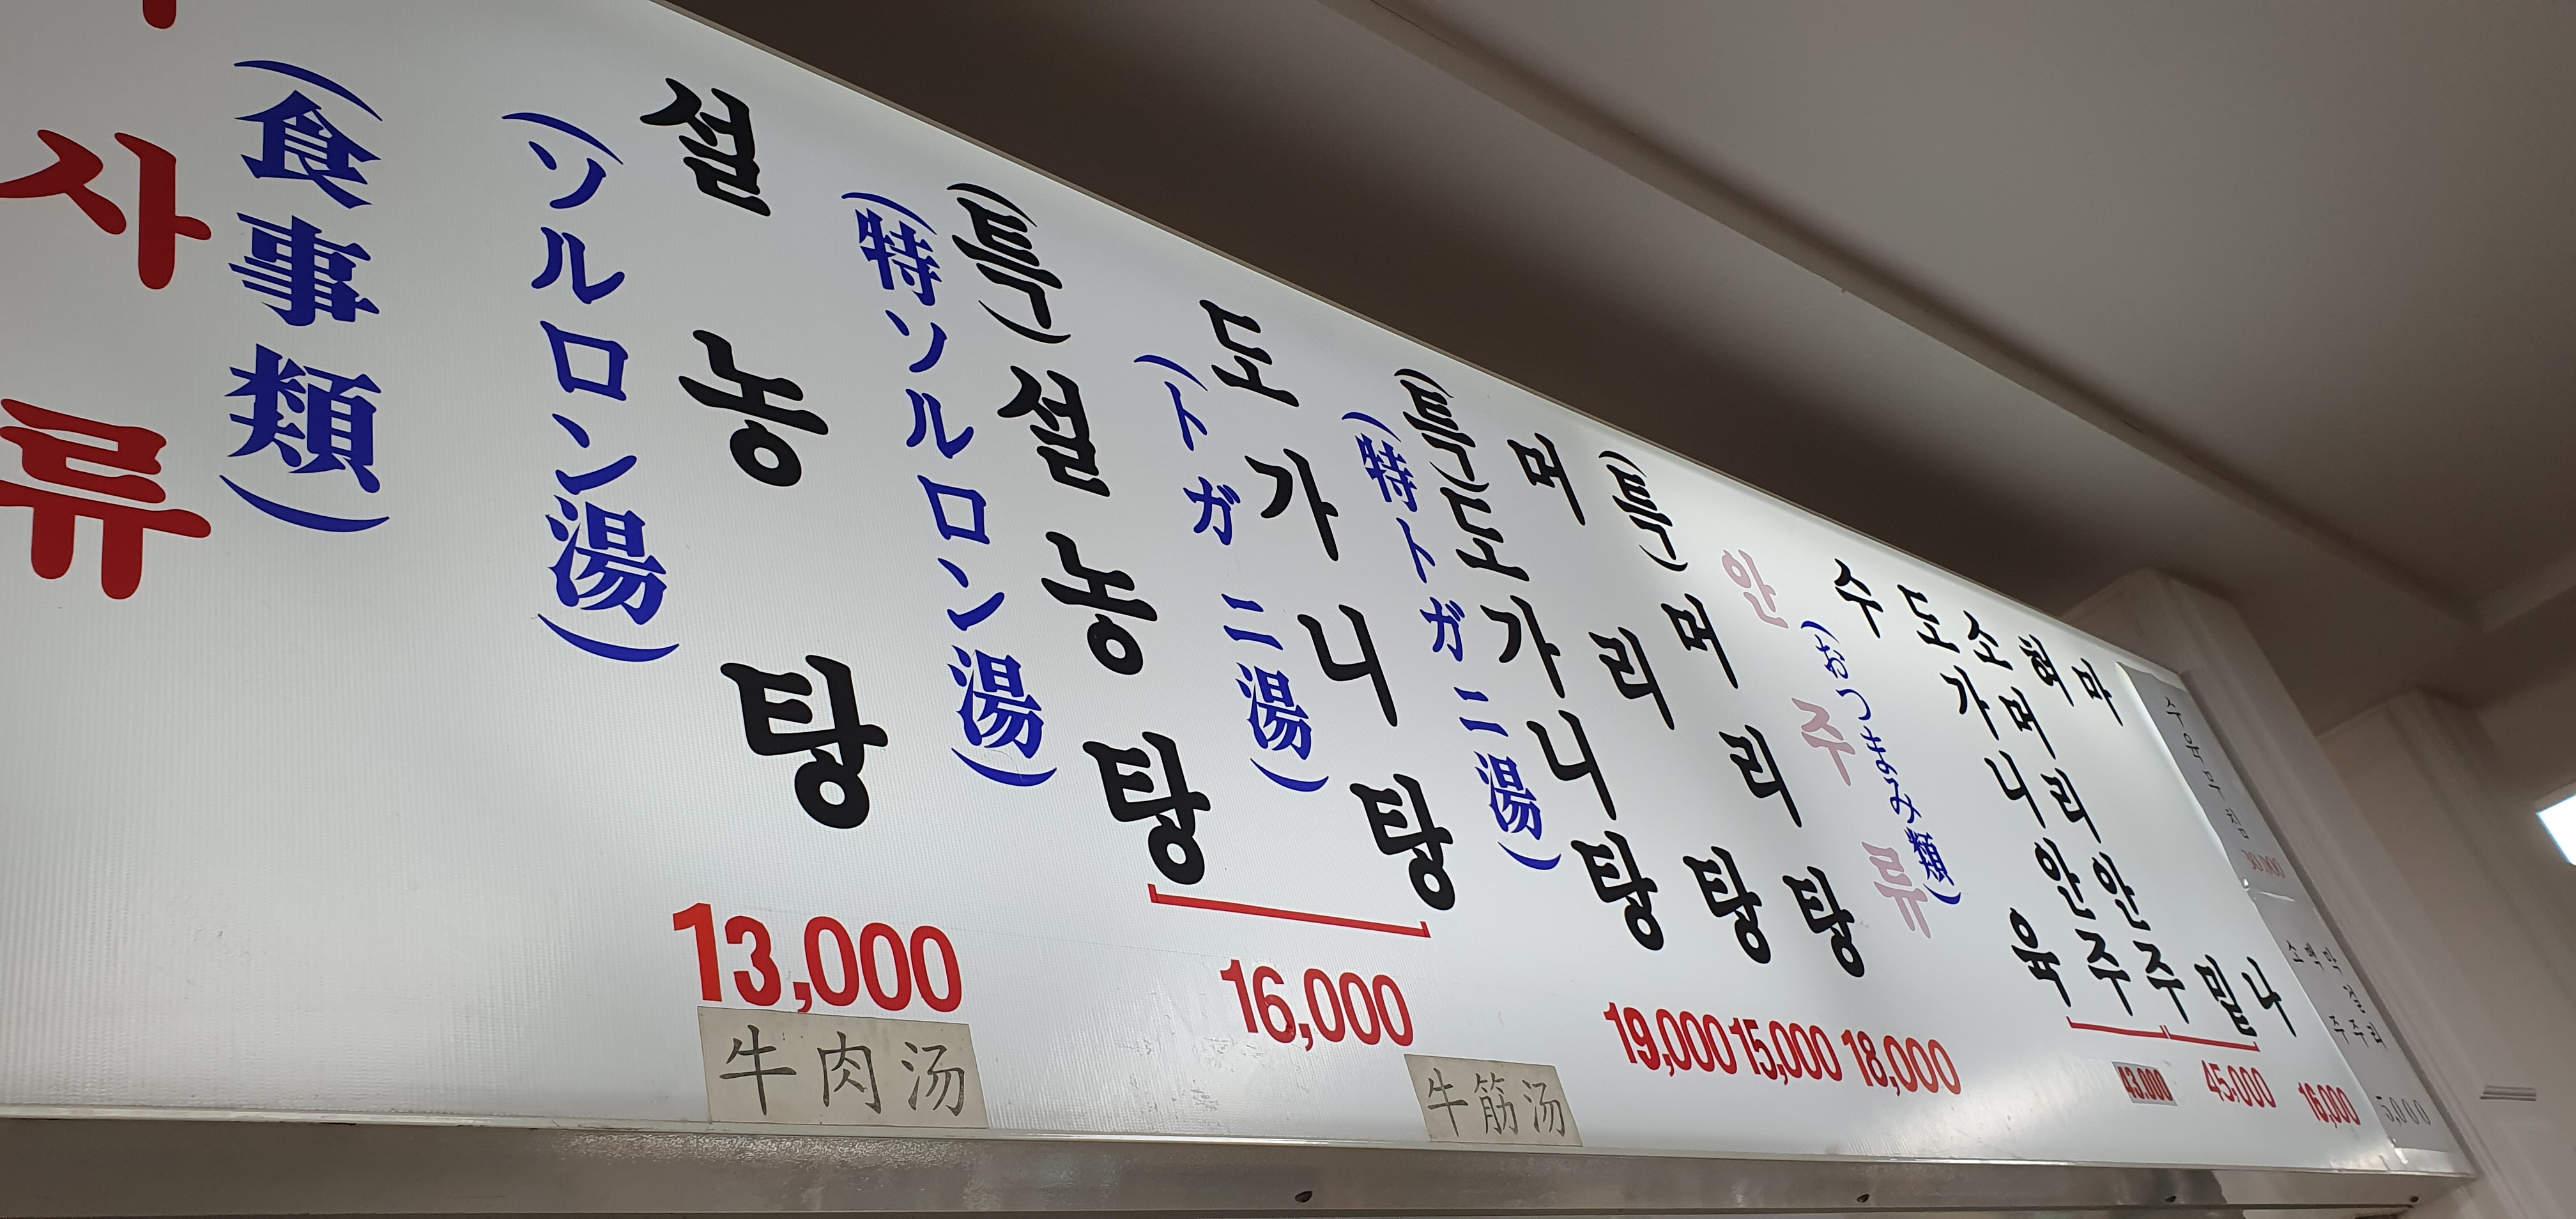 사류
(食事類)
설농탕
(ソルロン湯)
13,000
牛肉汤
(특)설농탕
(特ソルロン湯)
도가니탕
(トガニ湯)
16,000
牛筋汤
(특)도가니탕
(特トガニ湯)
19,000
머리탕
15,000
(특)머리탕
18,000
안주류
(おつまみ類)
수육
도가니안주
소머리안주
혀밑
마나
43,000
45,000
수육무침
30,000
16,000
소주
맥주
막걸리
5,000